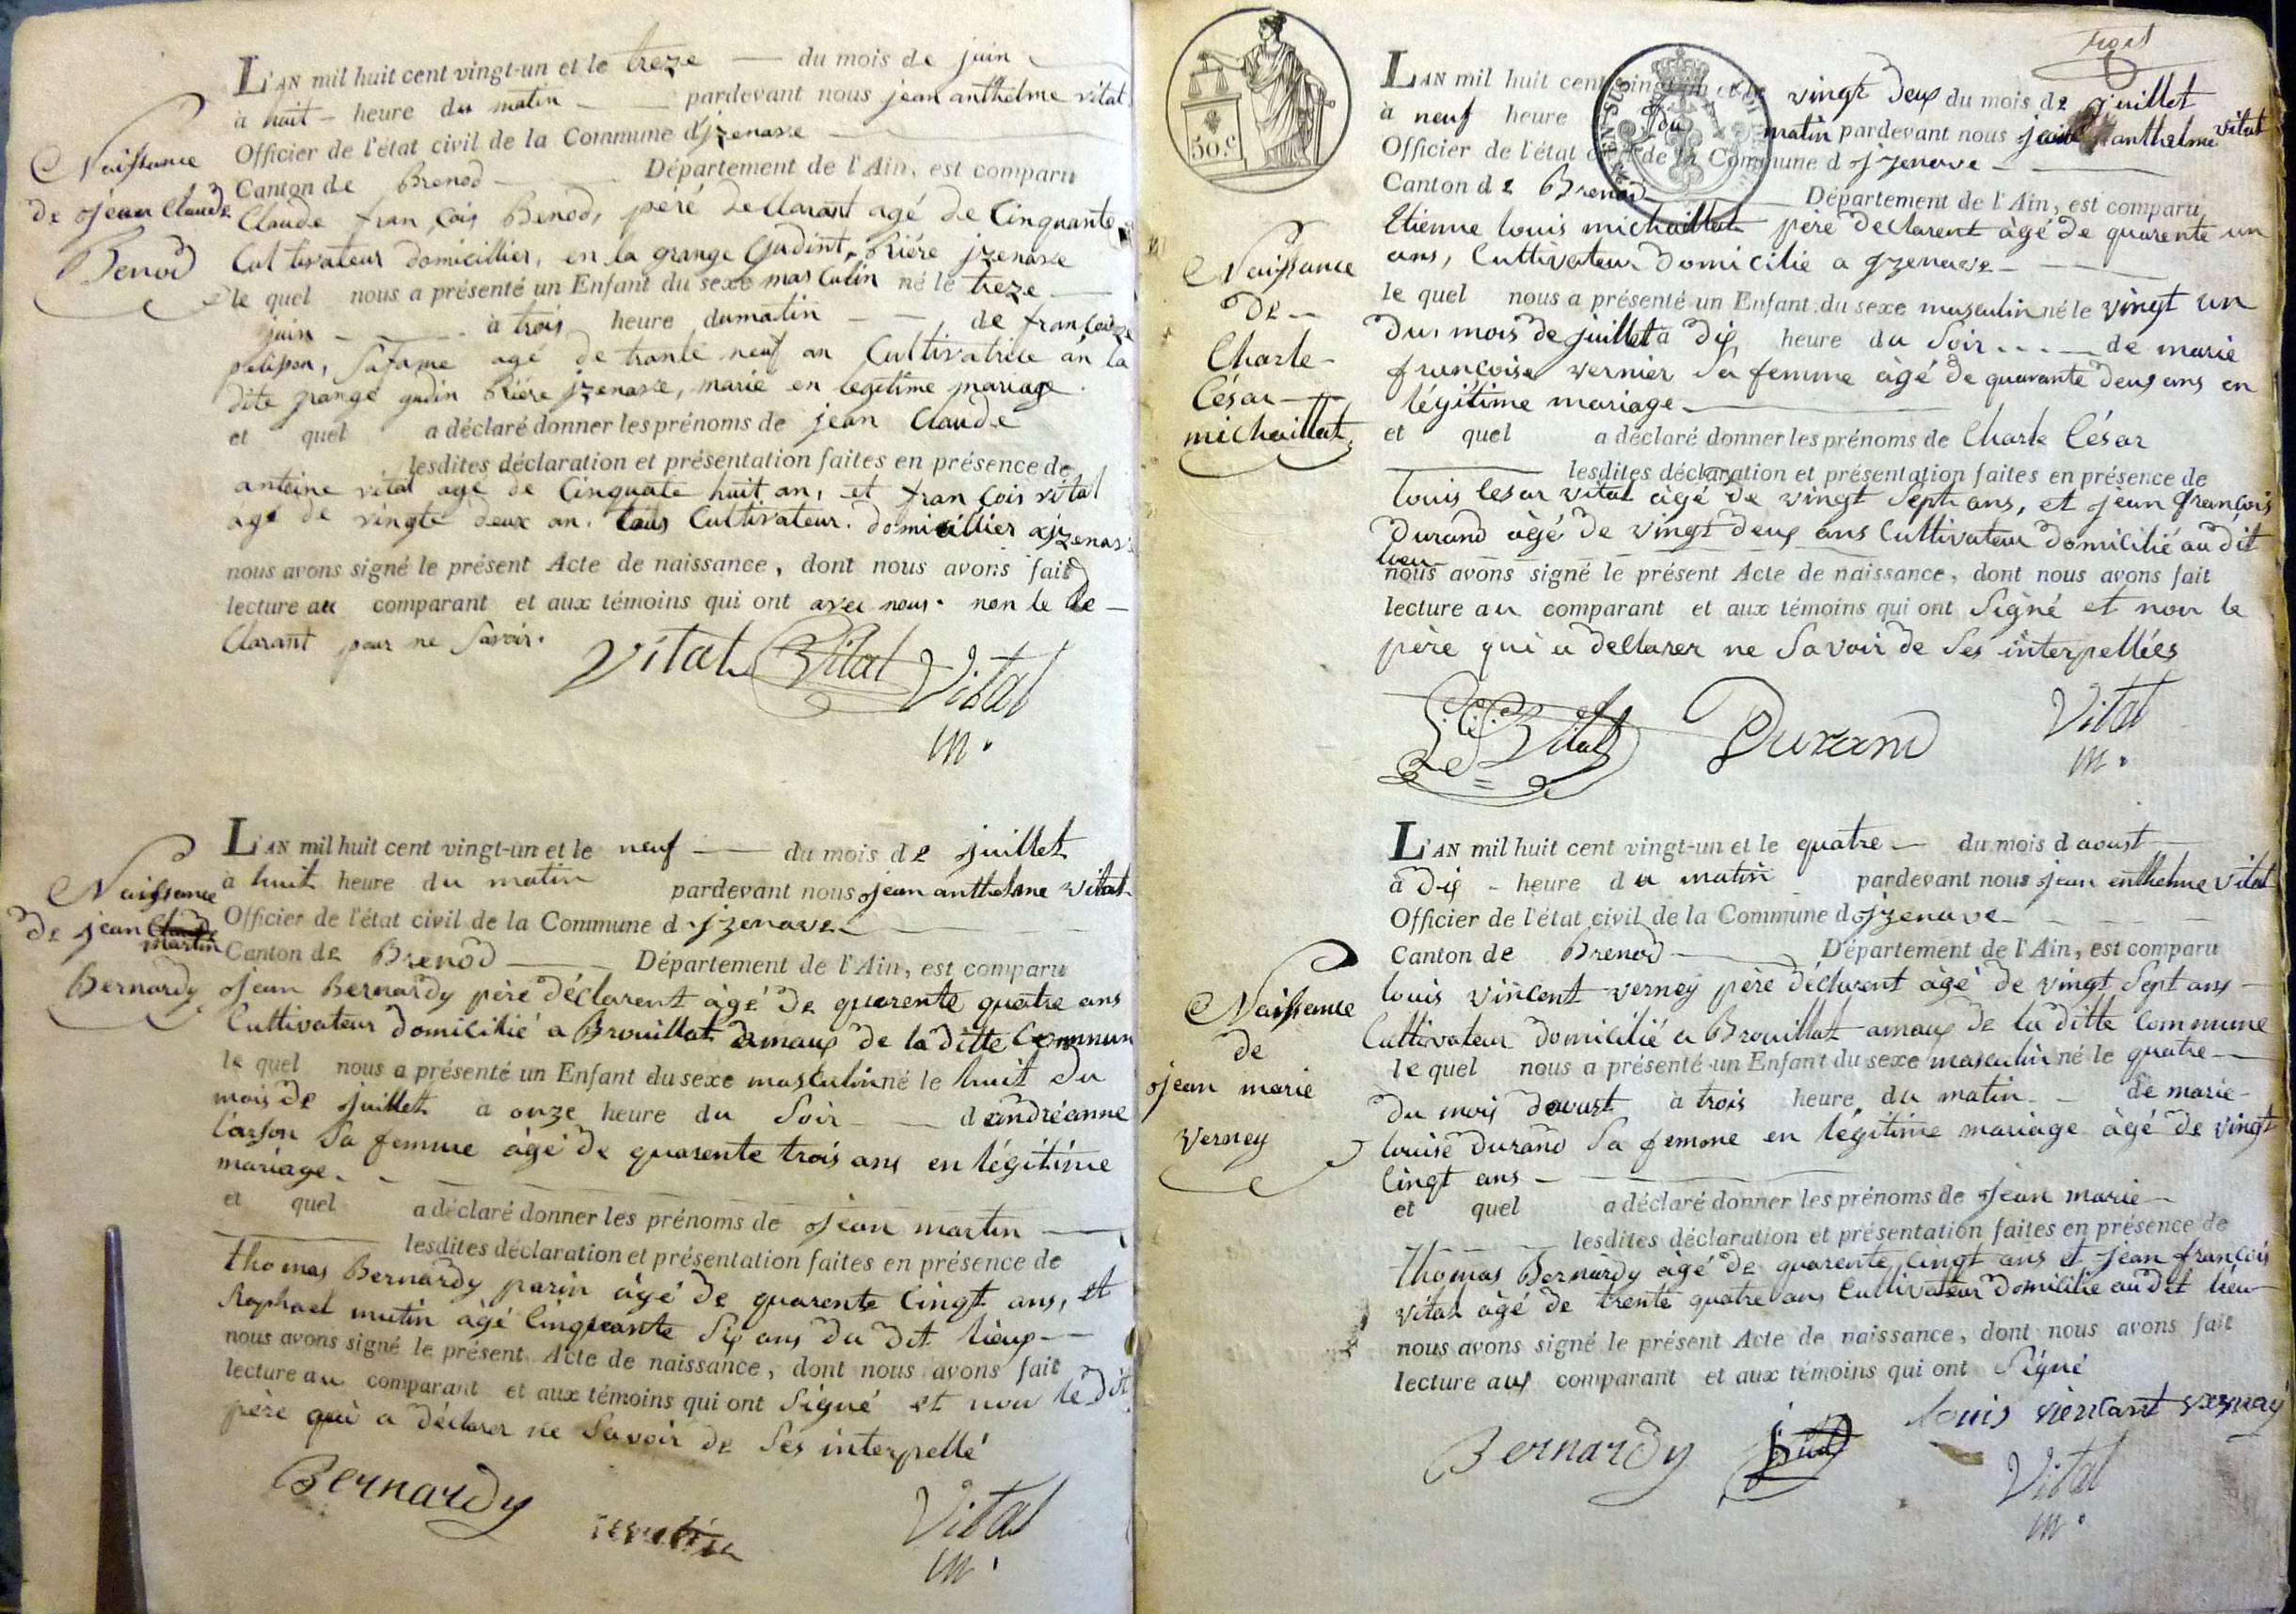 L'AN mil huit cent vingt-un et le treze du mois de juin
à huit heure du matin pardevant nous jean anthelme vital
Officier de l'état civil de la Commune d'jzenave
Canton de Brenod Département de l'Ain, est comparu
Claude françois Benod, peré declarant agé de Cinquante
Cultivateur domicillier, en la grange Gudint, Riére jzenave
le quel nous a présenté un Enfant du sexe masculin né le treze
juin à trois heure du matin de françoise
, sa fame agé de trante neuf an Cultivatrice an la
dite grange gudin Riére jzenave, marié en legitime mariage
et quel a déclaré donner les prénoms de jean Claude
lesdites déclaration et présentation faites en présence de
antoine vital agé de Cinquate huit an, et françois vital
agé de vingte deux an. tous Cultivateur. domicillier ajzenave
nous avons signé le présent Acte de naissance, dont nous avons fait
lecture au comparant et aux témoins qui ont avec nous. non le de-
clarant pour ne savoir.
Vital Vital Vital
m.
Naissance
de jean Claude
Benod
L'AN mil huit cent vingt-un et le neuf du mois de juillet
à huit heure du matin pardevant nous jean anthelme vital
Officier de l'état civil de la Commune d jzenave
Canton de Brenod Département de l'Ain, est comparu
jean Bernardy père déclarent àgé de quarente quatre ans
Cultivateur domicilié a Brouillat amaux de la ditte Commun
le quel nous a présenté un Enfant du sexe masculin né le huit du
mois de juillet à onze heure du Soir d andréanne
Carson Sa femme àgé de quarente trois ans en légitime
mariage.
et quel a déclaré donner les prénoms de jean martin
lesdites déclaration et présentation faites en présence de
thomas Bernardy parin àgé de quarente Cingt ans, et
Raphael mutin àgé Cinquante Six ans du dit lieux
nous avons signé le présent Acte de naissance, dont nous avons fait
lecture au comparant et aux témoins qui ont Signé et non le dit
père qui a déclarer ne Savoir de Ses interpellé
Bernardy Vital
m.
Naissance
de jean Claude
martin
Bernardy
50.c
L'AN mil huit cent vingt-un et le vingt deux du mois de juillet
à neuf heure du matin pardevant nous jean anthelme vital
Officier de l'état civil de la Commune d jzenave
Canton de Brenod Département de l'Ain, est comparu
Etienne louis michaillat père declarent àgé de quarente un
ans, Cultivateur Domicilié a jzenave
le quel nous a présenté un Enfant du sexe masculin né le vingt un
du mois de juillet a dix heure du Soir de marie
françoise vernier Sa femme àgé de quarante deux ans en
légitime mariage
et quel a déclaré donner les prénoms de Charle César
lesdites déclaration et présentation faites en présence de
louis Cesar vital àgé de vingt Sept ans, et jean françois
Durand àgé de vingt deux ans Cultivateur domicilié au dit
lieu
nous avons signé le présent Acte de naissance, dont nous avons fait
lecture au comparant et aux témoins qui ont Signé et non le
père qui a declarer ne Savoir de Ses interpellées
L. C. Vital Durand Vital
m.
Naissance
de
Charle
César
michaillat
L'AN mil huit cent vingt-un et le quatre du mois d aoust
à dix heure du matin pardevant nous jean enthelme Vital
Officier de l'état civil de la Commune d jzenave
Canton de Brenod Département de l'Ain, est comparu
louis vincent verney père déclarent àgé de vingt Sept ans
Cultivateur domicilié a Brouillat amaux de la ditte Commune
le quel nous a présenté un Enfant du sexe masculin né le quatre
du mois d'aoust à trois heure du matin de marie
louise Durand Sa femme en légitime mariage àgé de vingt
Cingt ans
et quel a déclaré donner les prénoms de jean marie
lesdites déclaration et présentation faites en présence de
thomas Bernardy àgé de quarente Cingt ans et jean françois
vital àgé de trente quatre ans Cultivateur domicilié au dit lieu
nous avons signé le présent Acte de naissance, dont nous avons fait
lecture aux comparant et aux témoins qui ont Signé
louis viencant vernay
Bernardy Vital
m.
Naissance
de
jean marie
verney